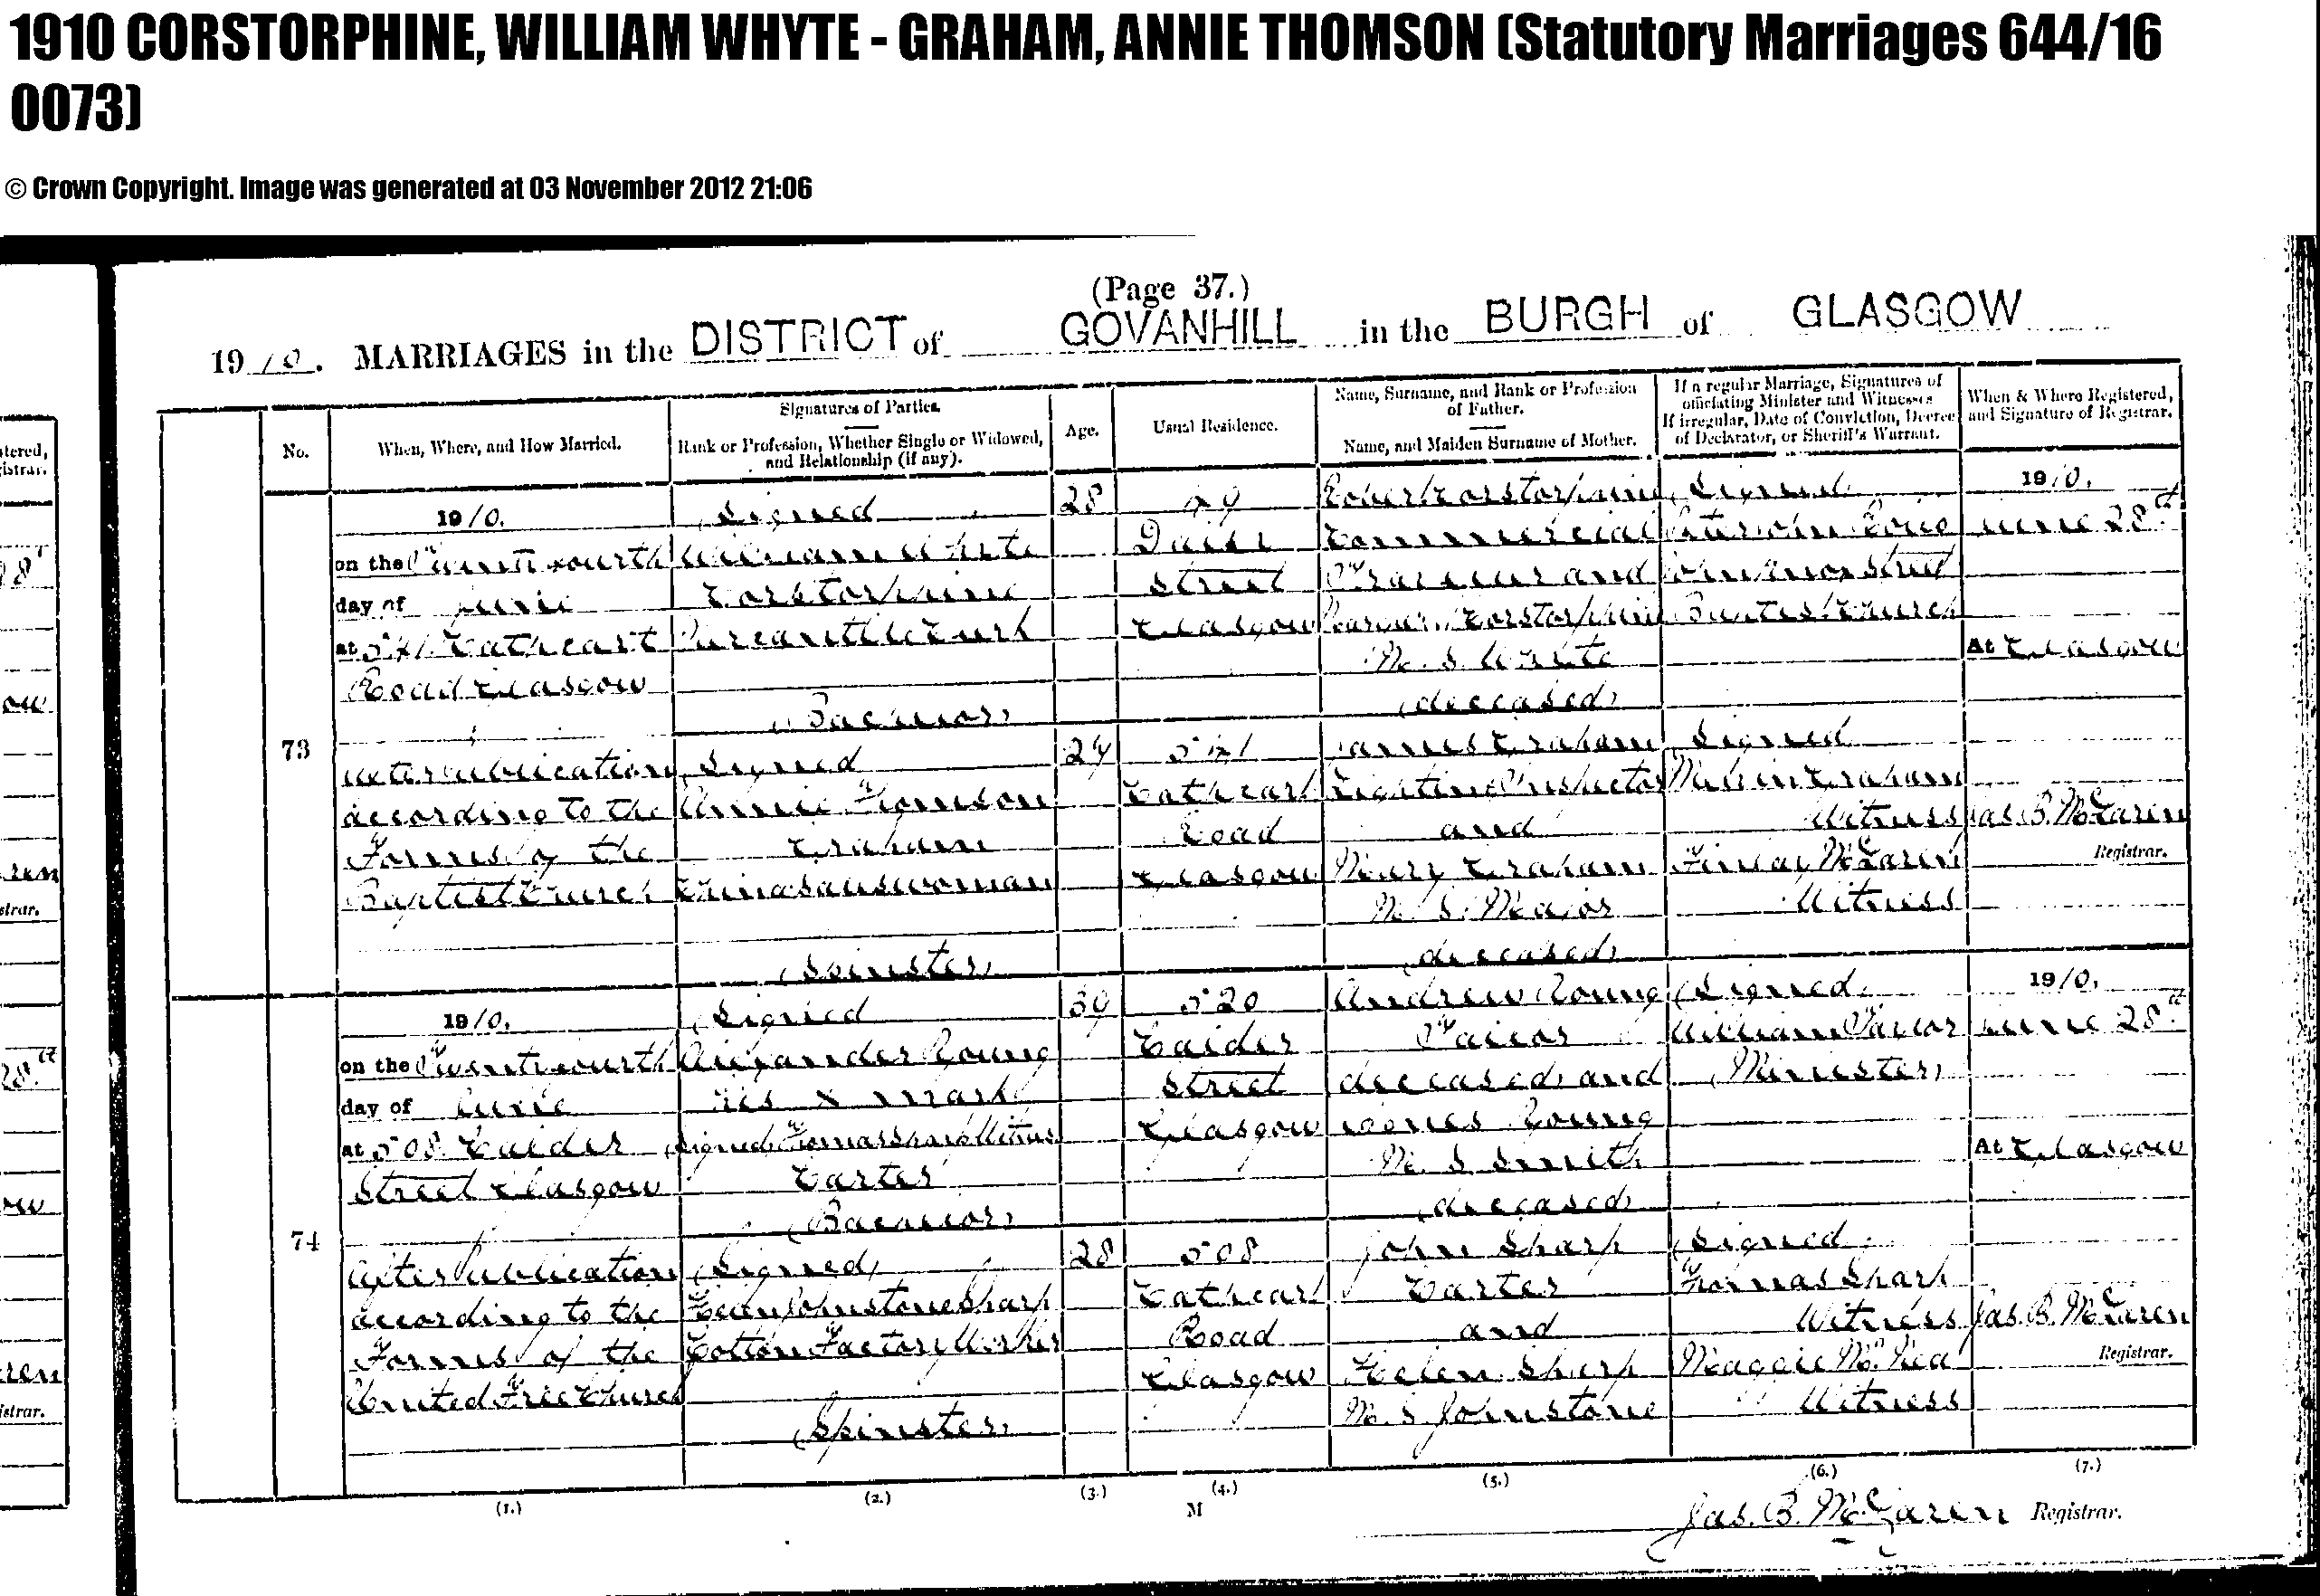 1910 CORSTORPHINE, WILLIAM WHYTE - GRAHAM, ANNIE THOMSON (Statutory Marriages 644/16
0073)
© Crown Copyright. Image was generated at 03 November 2012 21:06
(Page 37.)
1910. MARRIAGES in the DISTRICT of GOVANHILL in the BURGH of GLASGOW
No.
When, Where, and How Married.
Signatures of Parties.
Rank or Profession, Whether Single or Widowed,
and Relationship (if any).
Age.
Usual Residence.
Name, Surname, and Rank or Profession
of Father.
Name, and Maiden Surname of Mother.
If a regular Marriage, Signatures of
officiating Minister and Witnesses
If irregular, Date of Conviction, Decree
of Declarator, or Sheriff's Warrant.
When & Where Registered,
and Signature of Registrar.
73
1910.
on the Twenty fourth
day of June
at 541 Cathcart
Road Glasgow
After publication
according to the
Forms of the
Baptist Church
(Signed)
William Whyte
Corstorphine
Mercantile Clerk
(Bachelor)
(Signed)
Annie Thomson
Graham
China Saleswoman
(Spinster)
28
Street
Glasgow
541
Cathcart
Road
Glasgow
Robert Corstorphine
Commercial
Traveller and
Corstorphine
M. S. Whyte
(deceased)
James Graham
Lighting Inspector
and
Mary Graham
M. S. Major
(deceased)
(Signed)
Street
Baptist Church
(Signed)
Graham
Witness
Finlay McLaren
Witness
1910.
June 28th
At Glasgow
Jas. B. McLaren
Registrar.
74
1910.
on the Twenty fourth
day of June
at 508 Calder
Street Glasgow
After publication
according to the
Forms of the
United Free Church
(Signed)
Alexander Young
his x mark
(Signed) Thomas Sharp Witness
Carter
(Bachelor)
(Signed)
Helen Johnstone Sharp
Cotton Factory Worker
(Spinster)
39
520
Calder
Street
Glasgow
28
508
Cathcart
Road
Glasgow
Andrew Young
Tailor
(deceased) and
Agnes Young
M. S. Smith
(deceased)
John Sharp
Carter
and
Helen Sharp
M. S. Johnstone
(Signed)
William Taylor
(Minister)
(Signed)
Thomas Sharp
Witness
Maggie
Witness
1910.
June 28th
At Glasgow
Jas. B. McLaren
Registrar.
(1.)
(2.)
(3.)
(4.)
(5.)
(6.)
(7.)
M
Jas. B. McLaren Registrar.